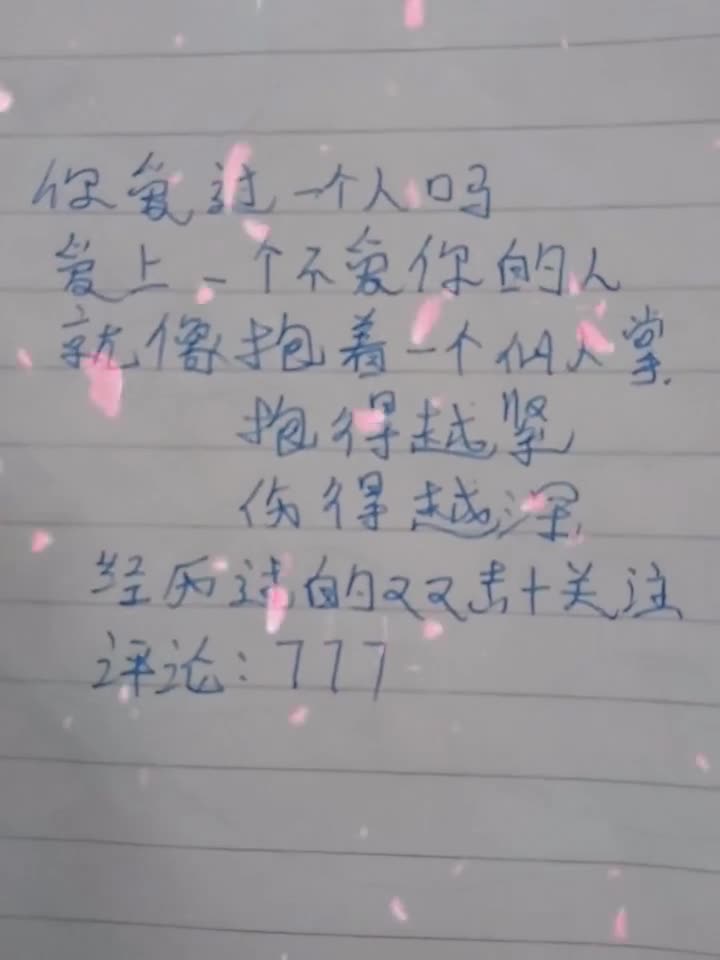 你爱过一个人吗
爱上一个不爱你的人
就像抱着一个仙人掌
抱得越紧
伤得越深
经历过的双双击+关注
评论:777